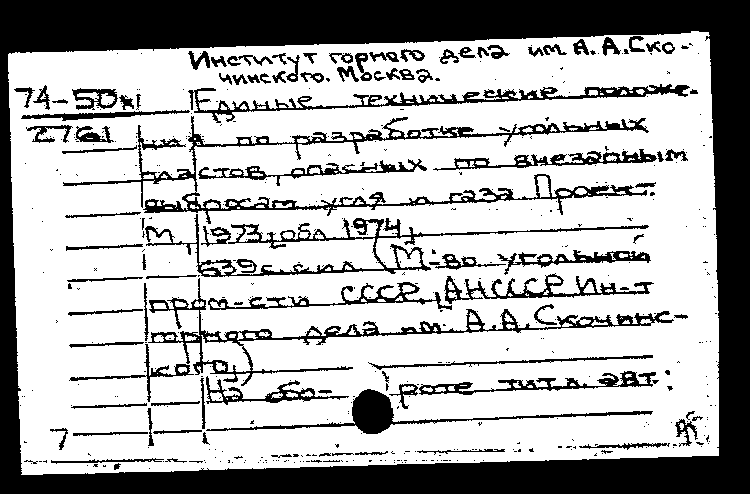 Институт горного дела им. А.А. Ско-
чинского. Москва.
74-50к
2761
Единые технические положе-
ния по разработке угольных
пластов, опасных по внезапным
выбросам угля и газа. Проект.
М., 1973, обл. 1974.
639 с. с ил. (М-во угольной
пром-сти СССР. АН СССР. Ин-т
горного дела им. А.А. Скочинс-
кого)
На обо- роте тит.л. авт.:
7